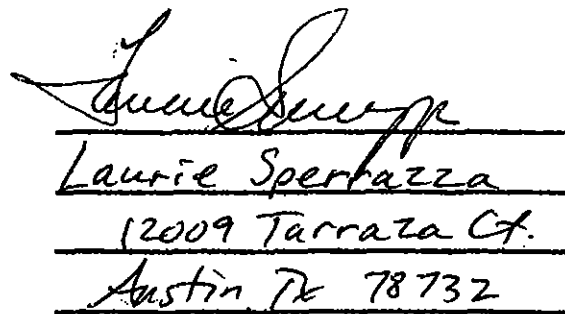 Laurie Sperrazza
12009 Tarraza Ct.
Austin Tx 78732